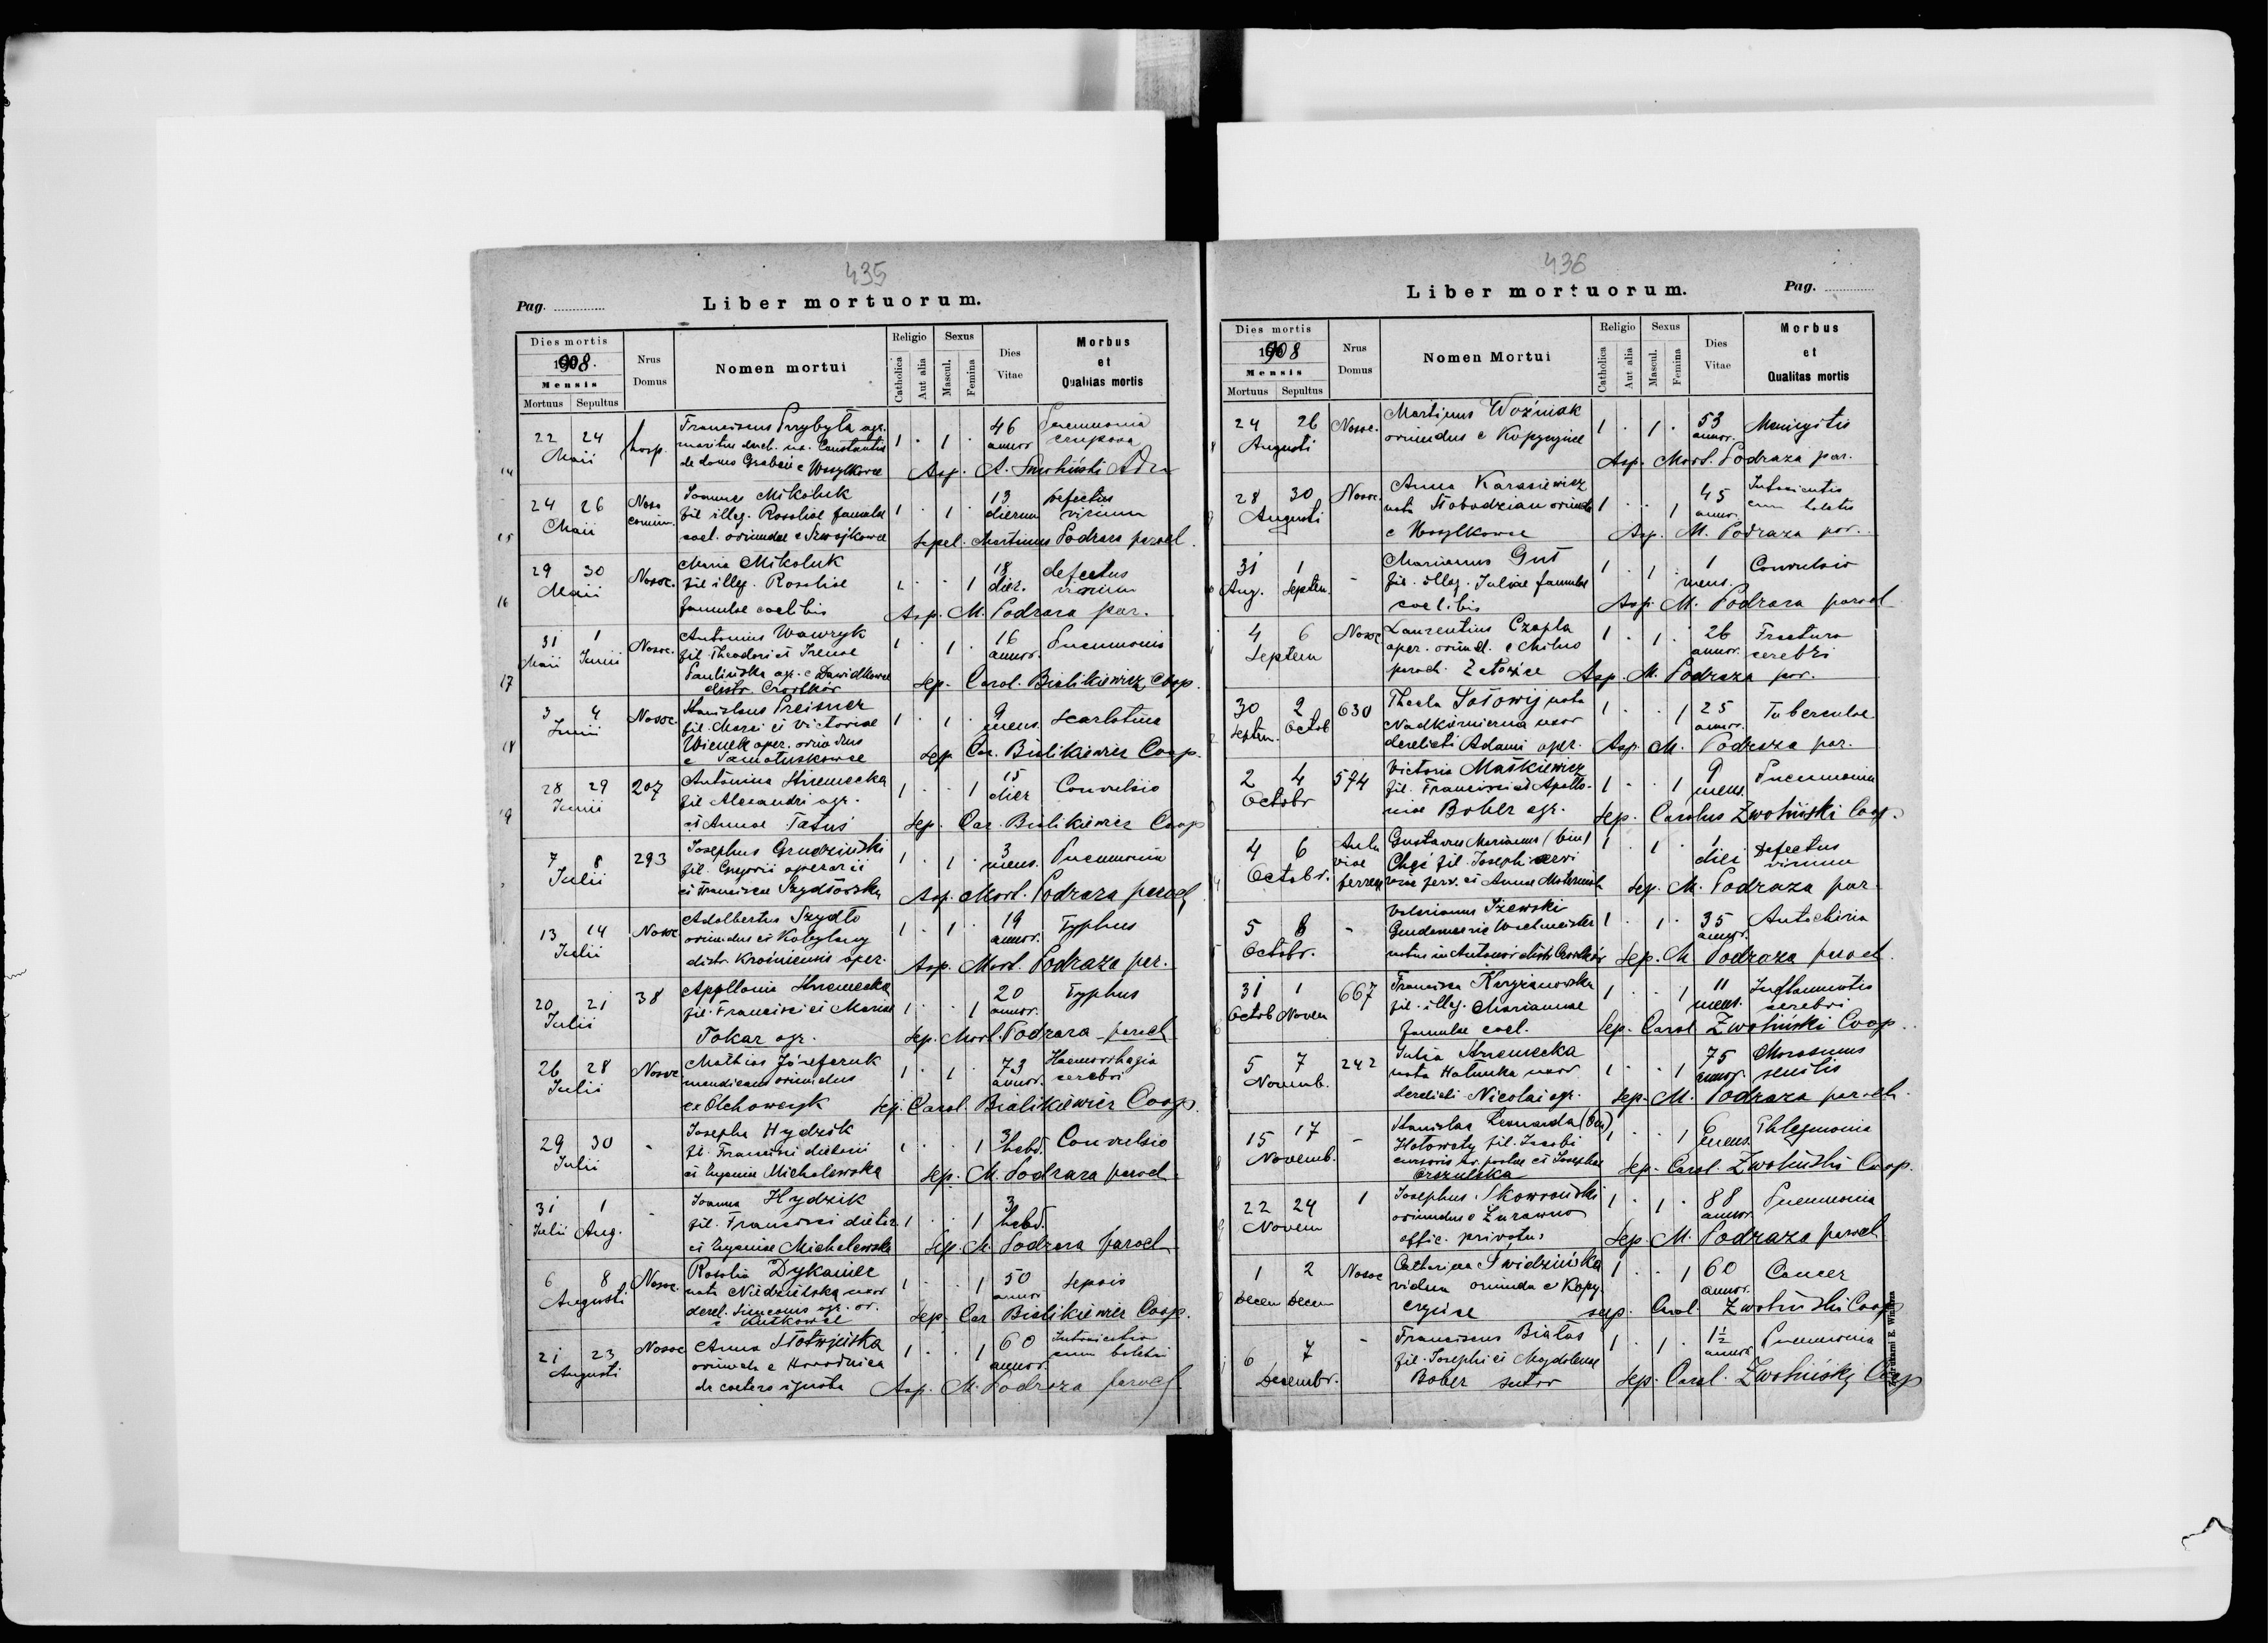 435
Pag.
Liber mortuorum.
Dies mortis
1908.
Mensis
Mortuus Sepultus
Nrus Domus
Nomen mortui
Religio
Catholica
Aut alia
Sexus
Mascul.
Femina
Dies Vitae
Morbus et Qualitas mortis
22 24 hosp. Franciscus Przybyła agr. 1 . 1 . 46 Pneumonia
Maii maritus derel. na. Constantia annor. cruposa
14 de domo Grabcii e Wasylkowce Asp. A.
24 26 Noso Joannes Mikoluk 13 Defectus
Maii comium. fil illeg. Rosaliae famulae 1 . 1 . dierum virium
15 coel. oriundae e Szwajkowce Sepel. Martinus Podraza paroch.
29 30 Nosoc. Maria Mikoluk 18 defectus
Maii fil illeg. Rosaliae 1 . . 1 dier. virium
16 famulae coelibis Asp. M. Podraza par.
31 1 Nosoc. Antonius Wawryk 1 . 1 . 16 Pneumonia
Maii Junii fil. Theodori et Irenae annor.
17 Paulińska agr. e Dawidkowce Sep. Carol. Bialikiewicz Coop.
distr. Czortków
3 4 Nosoc. Stanislaus Preisner 9 Scarlatina
Junii fil. Marci et Victoriae 1 . 1 . mens.
18 Wienek oper. oriundus Sep. Car. Bialikiewicz Coop.
28 29 207 Antonina Strzemecka 15 Convulsio
Junii fil Alexandri agr. 1 . . 1 dier
19 et Annae Tatuś Sep. Car. Bialikiewicz Coop
7 8 293 Josephus Grudziński 3 Pneumonia
Julii fil. Gregorii operarii 1 . 1 . mens.
et Francisca Szydłowska Asp. Mart. Podraza paroch
13 14 Nosoc Adalbertus Szydło 1 . 1 . 19 Typhus
Julii oriundus e Kobylany annor.
distr. Krosniensis oper. Asp. Mart. Podraza par.
20 21 38 Appllonia Strzemecka 20 Typhus
Julii fil. Francisci et Mariae 1 . . 1 annor.
Tokar agr. Sep. Mart. Podraza paroch
26 28 Nosoc Mathias Józefczuk 73 Haemorrhagia
Julii mendicans oriundus 1 . 1 . annor. cerebri
ex Olchowczyk Sep. Carol. Bialikiewicz Coop.
29 30 - Josepha Hydzik 3 Convulsio
Julii fil. Francisci dietarii 1 . . 1 hebd.
et Eugeniae Michalewska Sep. M. Podraza paroch
31 1 - Joanna Hydzik 3
Julii Aug. fil. Francisci dietar. 1 . . 1 hebd.
et Eugeniae Michalewska Sep. M. Podraza paroch
6 8 Nosoc. Rosalia Dykaniec 1 . . 1 50 Sepsis
Augusti nata Niedzielska uxor annor
derel. Simeonis agr. or. Sep. Car Bialikiewicz Coop.
21 23 Nosoc Anna Słotwińska 1 . . 1 60 Intoxicatio
Augusti oriunda e Horodnica annor. cum boletis
de caetero ignota Asp. M. Podraza paroch
436
Liber mortuorum.
Pag.
Dies mortis
1908
Mensis
Mortuus Sepultus
Nrus Domus
Nomen Mortui
Religio
Catholica
Aut alia
Sexus
Mascul.
Femina
Dies Vitae
Morbus et Qualitas mortis
24 26 Nosoc. Martinus Woźniak 1 . 1 . 53 Meningitis
Augusti oriundus e Kopyczyńce annor.
Asp. Mart. Podraza par.
28 30 Nosoc. Anna Karasiewicz 45
Augusti nata Słobodzian oriunda 1 . . 1 annor. cum boletis
e Wasylkowce Asp. M. Podraza par.
31 1 - Marianus Gut 1 . 1 . 1 Convulsio
Aug. Septem. fil. illeg. Juliae famulae mens.
coelibis Asp. M. Podraza paroch
4 6 Nosoc Laurentius Czapla 1 . 1 . 26 Fractura
Septem oper. oriund. e annor. cerebri
paroch. Asp. M. Podraza par.
30 2 630 Thecla Sołowij nata 1 . . 1 25 Tuberculae
Septem. Octob Nadkiernierna uxor annor.
derelicti Adami oper. Asp. M. Podraza par.
2 4 574 Victoria Maśkiewicz 9 Pneumonia
Octobr fil. Francisci et Apollo- 1 . . 1 mens.
niae Bober agr. Sep. Carolus Zwoliński Coop.
4 6 Aula Gustavus Marianus (bin) 1 . 1 . 1 Defectus
Octobr. viae Chęć fil. Josephi servi diei virium
ferreae viae ferr. et Annae Sep. M. Podraza par
5 8 - Valerianus Iżewski 1 . 1 . 35 Autochiria
Octobr. Gendarmerie Wachmeister annor.
natus in Antonów distr. Czortków Sep. M Podraza paroch.
31 1 667 Francisca 1 . . 1 11 Inflammatio
Octob Novem fil. illeg. Mariannae mens. cerebri
famulae coel. Sep. Carol Zwoliński Coop.
5 7 242 Julia Strzemecka 75 Marasmus
Novemb. nata uxor 1 . . 1 annor. senilis
derelicti Nicolai agr. Sep. M. Podraza paroch.
15 17 - Stanislaa Leonarda (bin) 6 Phlegmonia
Novemb. Hołowaty fil. Jacobi 1 . . 1 mens.
cursoris postae et Josephae Sep. Carol. Zwoliński Coop.
22 24 1 Josephus Skowroński 1 . 1 . 88 Pneumonia
Novem oriundus e Żurawno annor
offic. privatus Sep. M. Podraza paroch
1 2 Nosoc Catharina Świdzińska 1 . . 1 60 Cancer
Decem Decem vidua oriunda e Kopy- annor.
czyńce sep. Carol. Zwoliński Coop
6 7 - Franciscus Białas 1 . 1 . 1½ Pneumonia
Decembr. fil. Josephi et Magdalenae annor
Bober sutor Sep. Carol. Zwoliński Coop